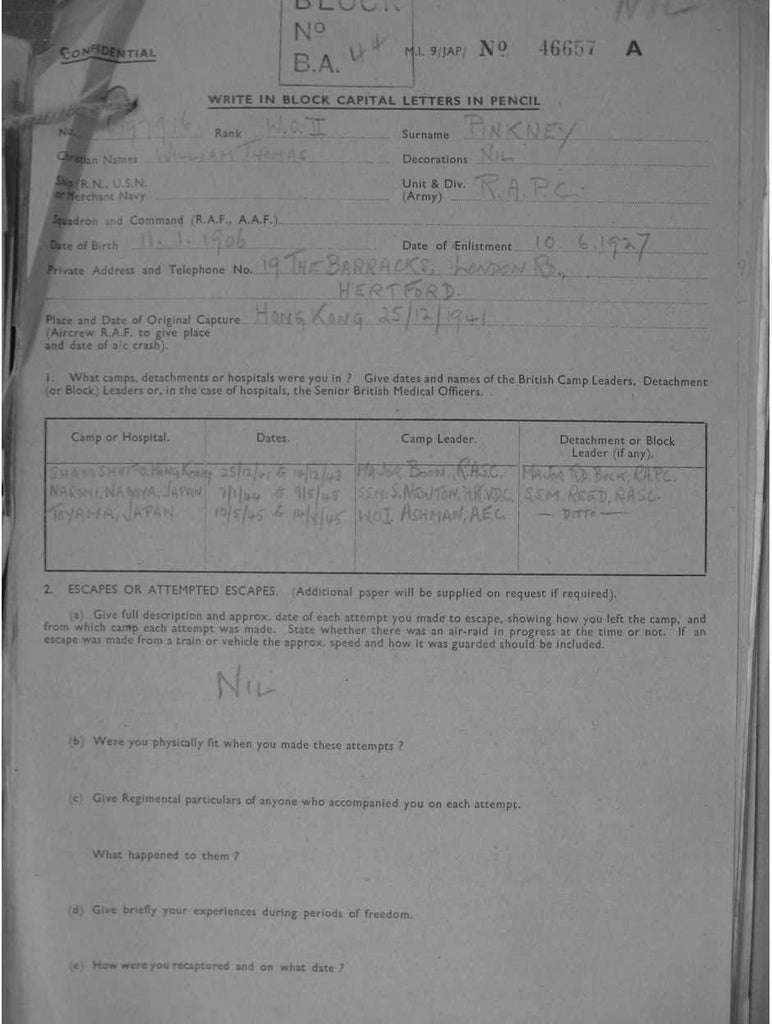 BLOCK
NIL
Nº
B.A. 44
CONFIDENTIAL
M.I. 9/JAP/ Nº 46657 A
WRITE IN BLOCK CAPITAL LETTERS IN PENCIL
No. Rank W.O.II Surname PINKNEY
Christian Names WILLIAM THOMAS Decorations NIL
Ship (R.N., U.S.N. or Merchant Navy Unit & Div. (Army) R.A.P.C.
Squadron and Command (R.A.F., A.A.F.)
Date of Birth 11.1.1906 Date of Enlistment 10.6.1927
Private Address and Telephone No. 19 THE BARRACKS, LONDON RD.,
HERTFORD.
Place and Date of Original Capture HONG KONG 25/12/1941
(Aircrew R.A.F. to give place
and date of a/c crash).
1. What camps, detachments or hospitals were you in ? Give dates and names of the British Camp Leaders, Detachment
(or Block) Leaders or, in the case of hospitals, the Senior British Medical Officers.
Camp or Hospital. Dates. Camp Leader. Detachment or Block Leader (if any).
SHAMSHUIPO, HONG KONG 25/12/41 to MAJOR BOON, R.A.S.C. MAJOR R.D. BUCK, R.A.P.C.
NARUMI, NAGOYA, JAPAN 7/1/44 to 9/5/45 S.S.M. S. NEWTON, H.K.V.D.C. S.S.M. REED, R.A.S.C.
TOYAMA, JAPAN 10/5/45 to WOI ASHMAN, A.E.C. — DITTO —
2. ESCAPES OR ATTEMPTED ESCAPES. (Additional paper will be supplied on request if required).
(a) Give full description and approx. date of each attempt you made to escape, showing how you left the camp, and
from which camp each attempt was made. State whether there was an air-raid in progress at the time or not. If an
escape was made from a train or vehicle the approx. speed and how it was guarded should be included.
NIL
(b) Were you physically fit when you made these attempts ?
(c) Give Regimental particulars of anyone who accompanied you on each attempt.
What happened to them ?
(d) Give briefly your experiences during periods of freedom.
(e) How were you recaptured and on what date ?